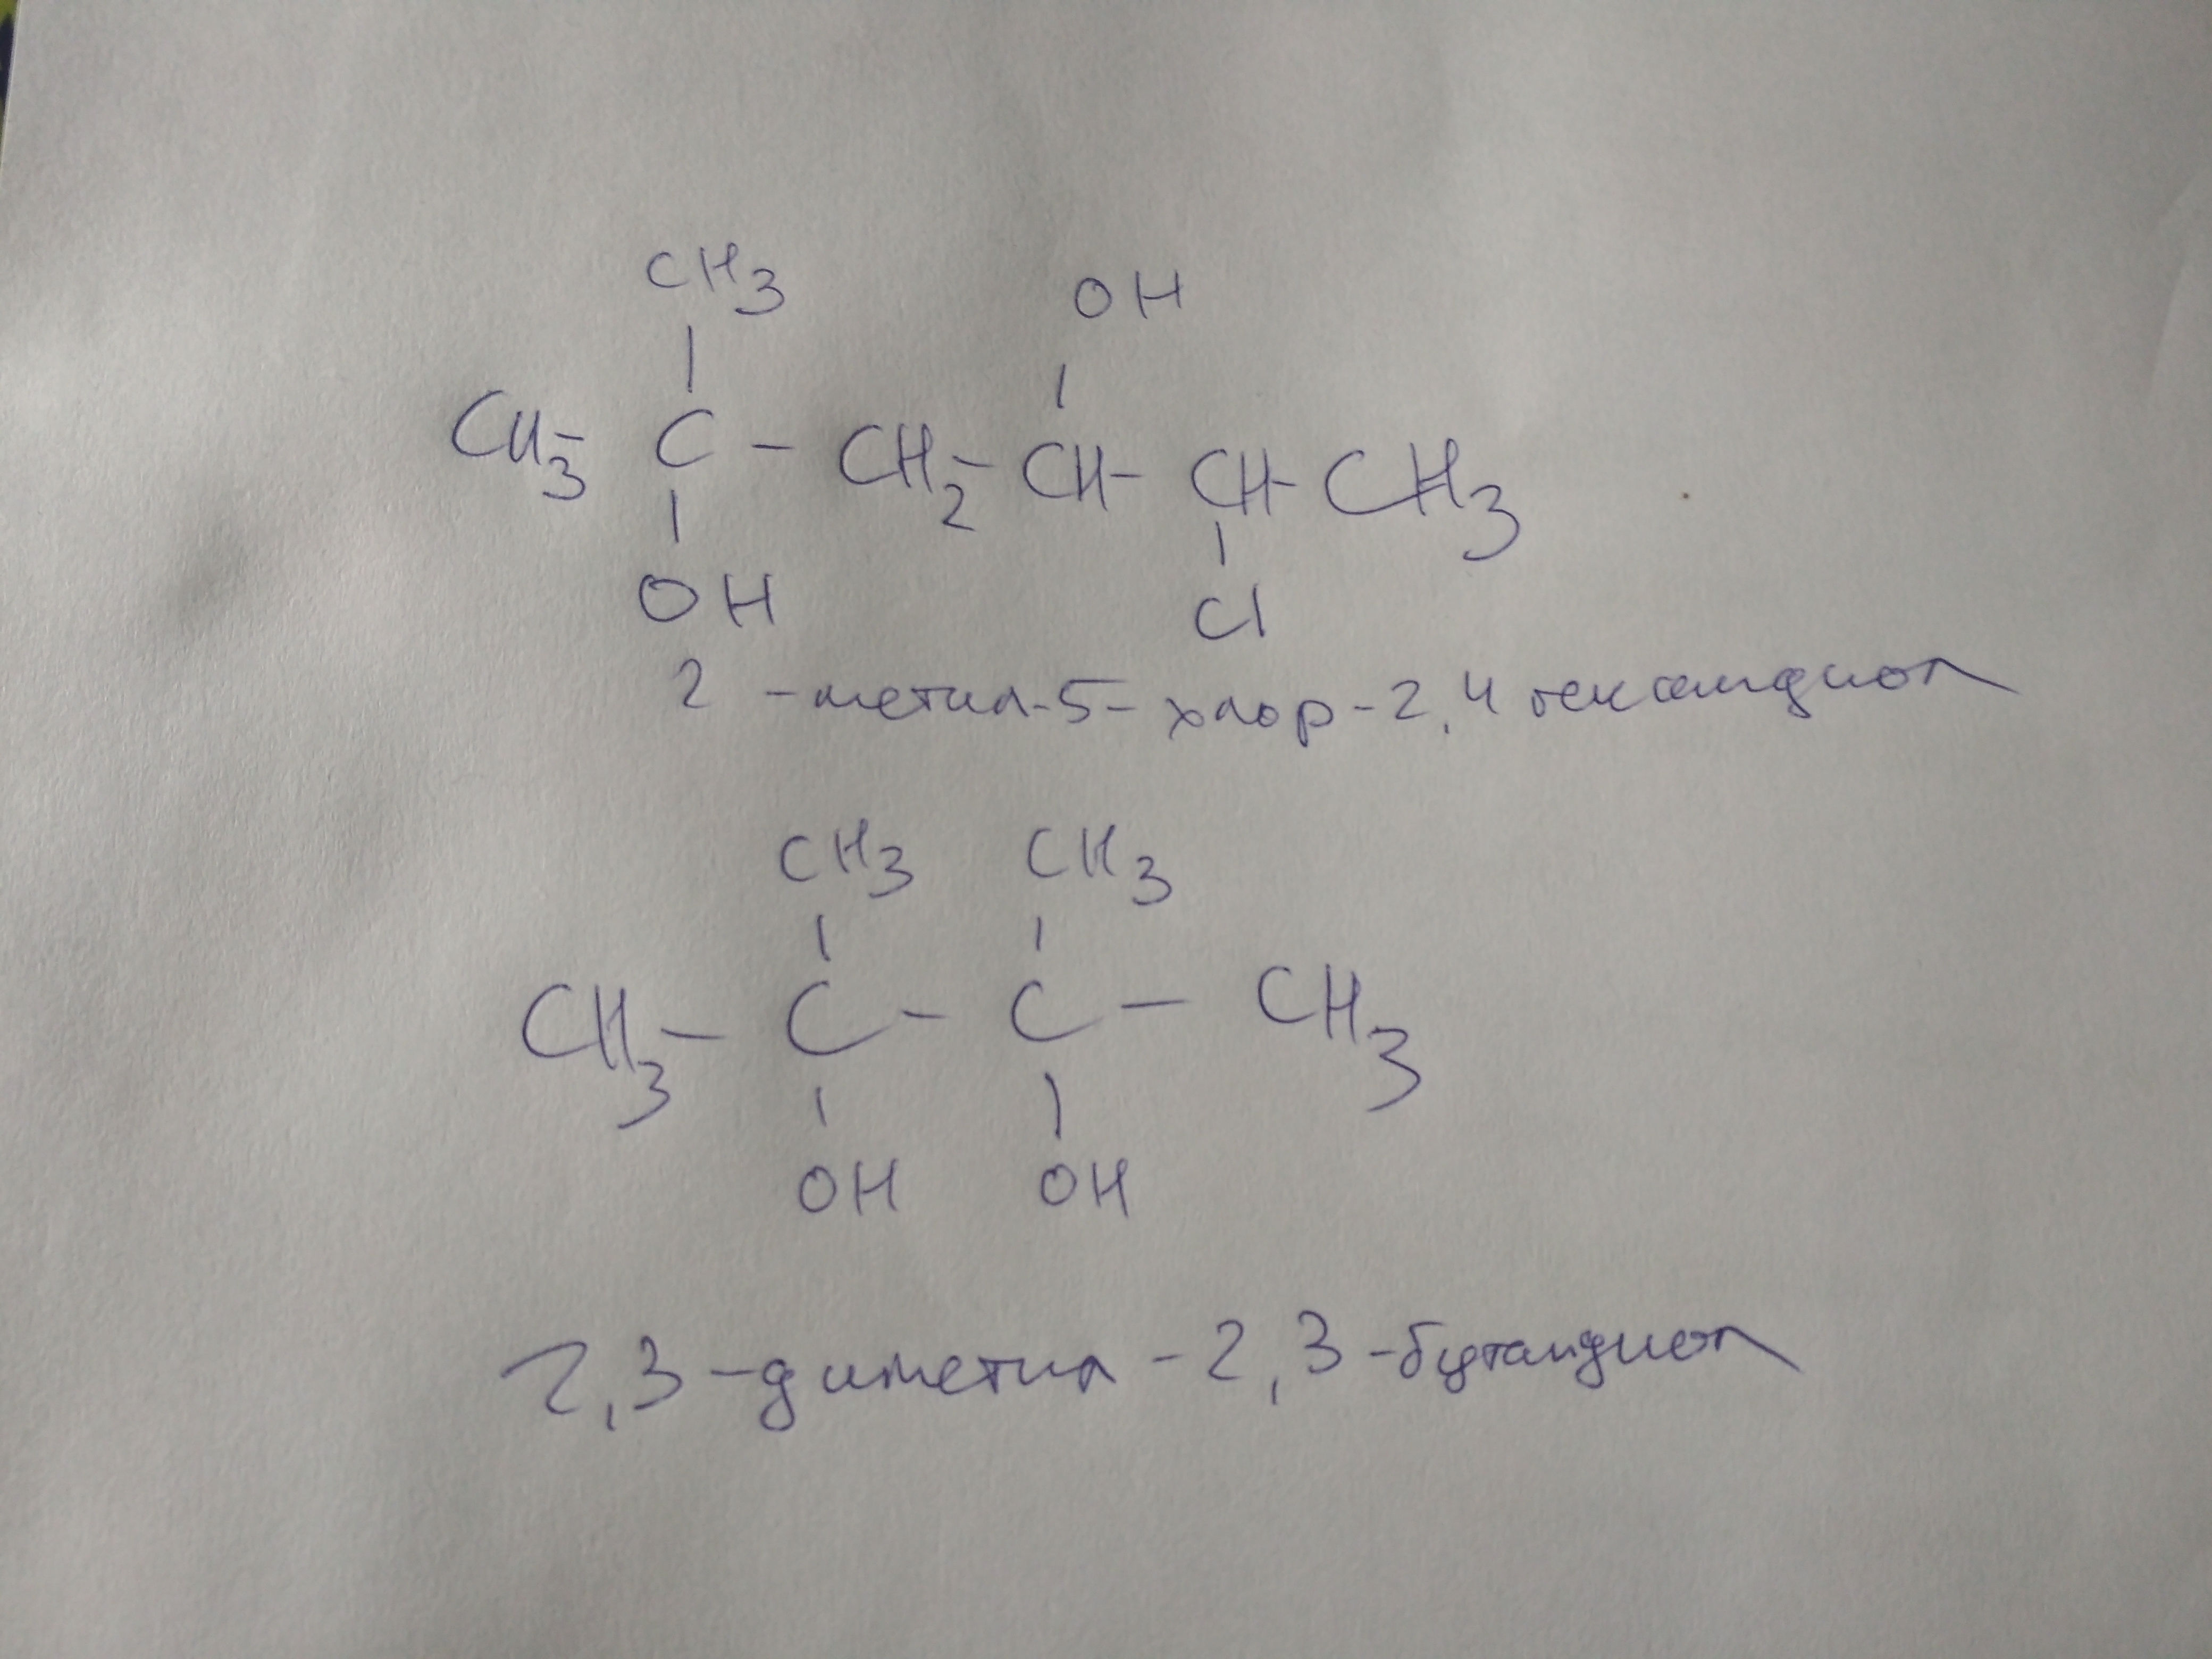 CH3 OH
CH3- C - CH2- CH- CH- CH3
OH Cl
2 -метил-5- хлор-2,4 гександиол
CH3 CH3
CH3- C - C - CH3
OH OH
2,3-диметил-2,3-бутандиол